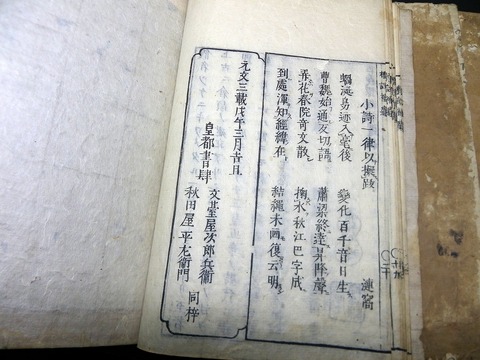 小詩一律以擬跋 漣窩
蝸涎鳥迹入後 變化百千音日生
曹魏始通反切語 蕭梁終達昇降聲
弄花春院奇文散 掬水秋江巴字成
到處渾知經緯在 結繩未復云明
元文三載戊午三月吉日
皇都書肆 文臺屋次郎兵衛
秋田屋平左衛門 同梓